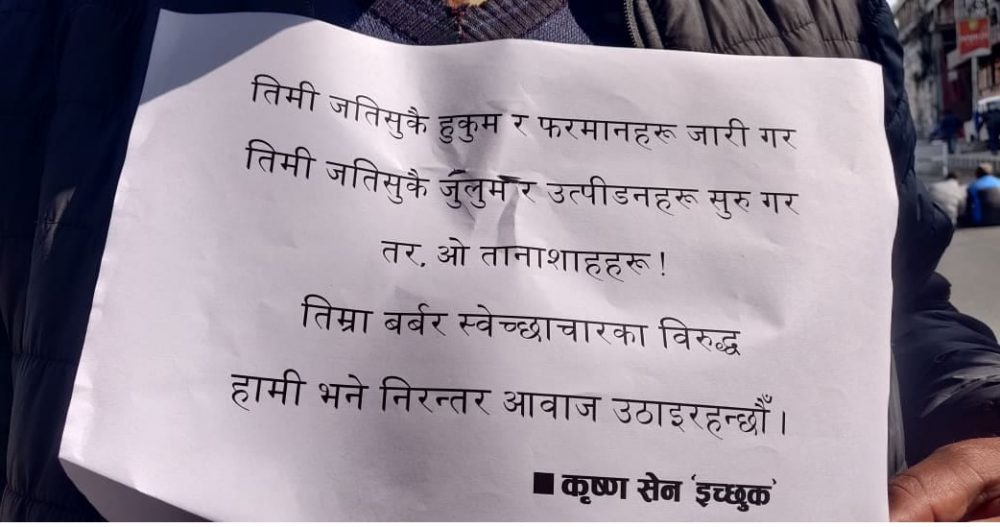 तिमी जतिसुकै हुकुम र फरमानहरू जारी गर
तिमी जतिसुकै जुलुम र उत्पीडनहरू सुरु गर
तर, ओ तानाशाहहरू !
तिम्रा बर्बर स्वेच्छाचारका विरुद्ध
हामी भने निरन्तर आवाज उठाइरहन्छौँ ।
■ कृष्ण सेन ‘इच्छुक’